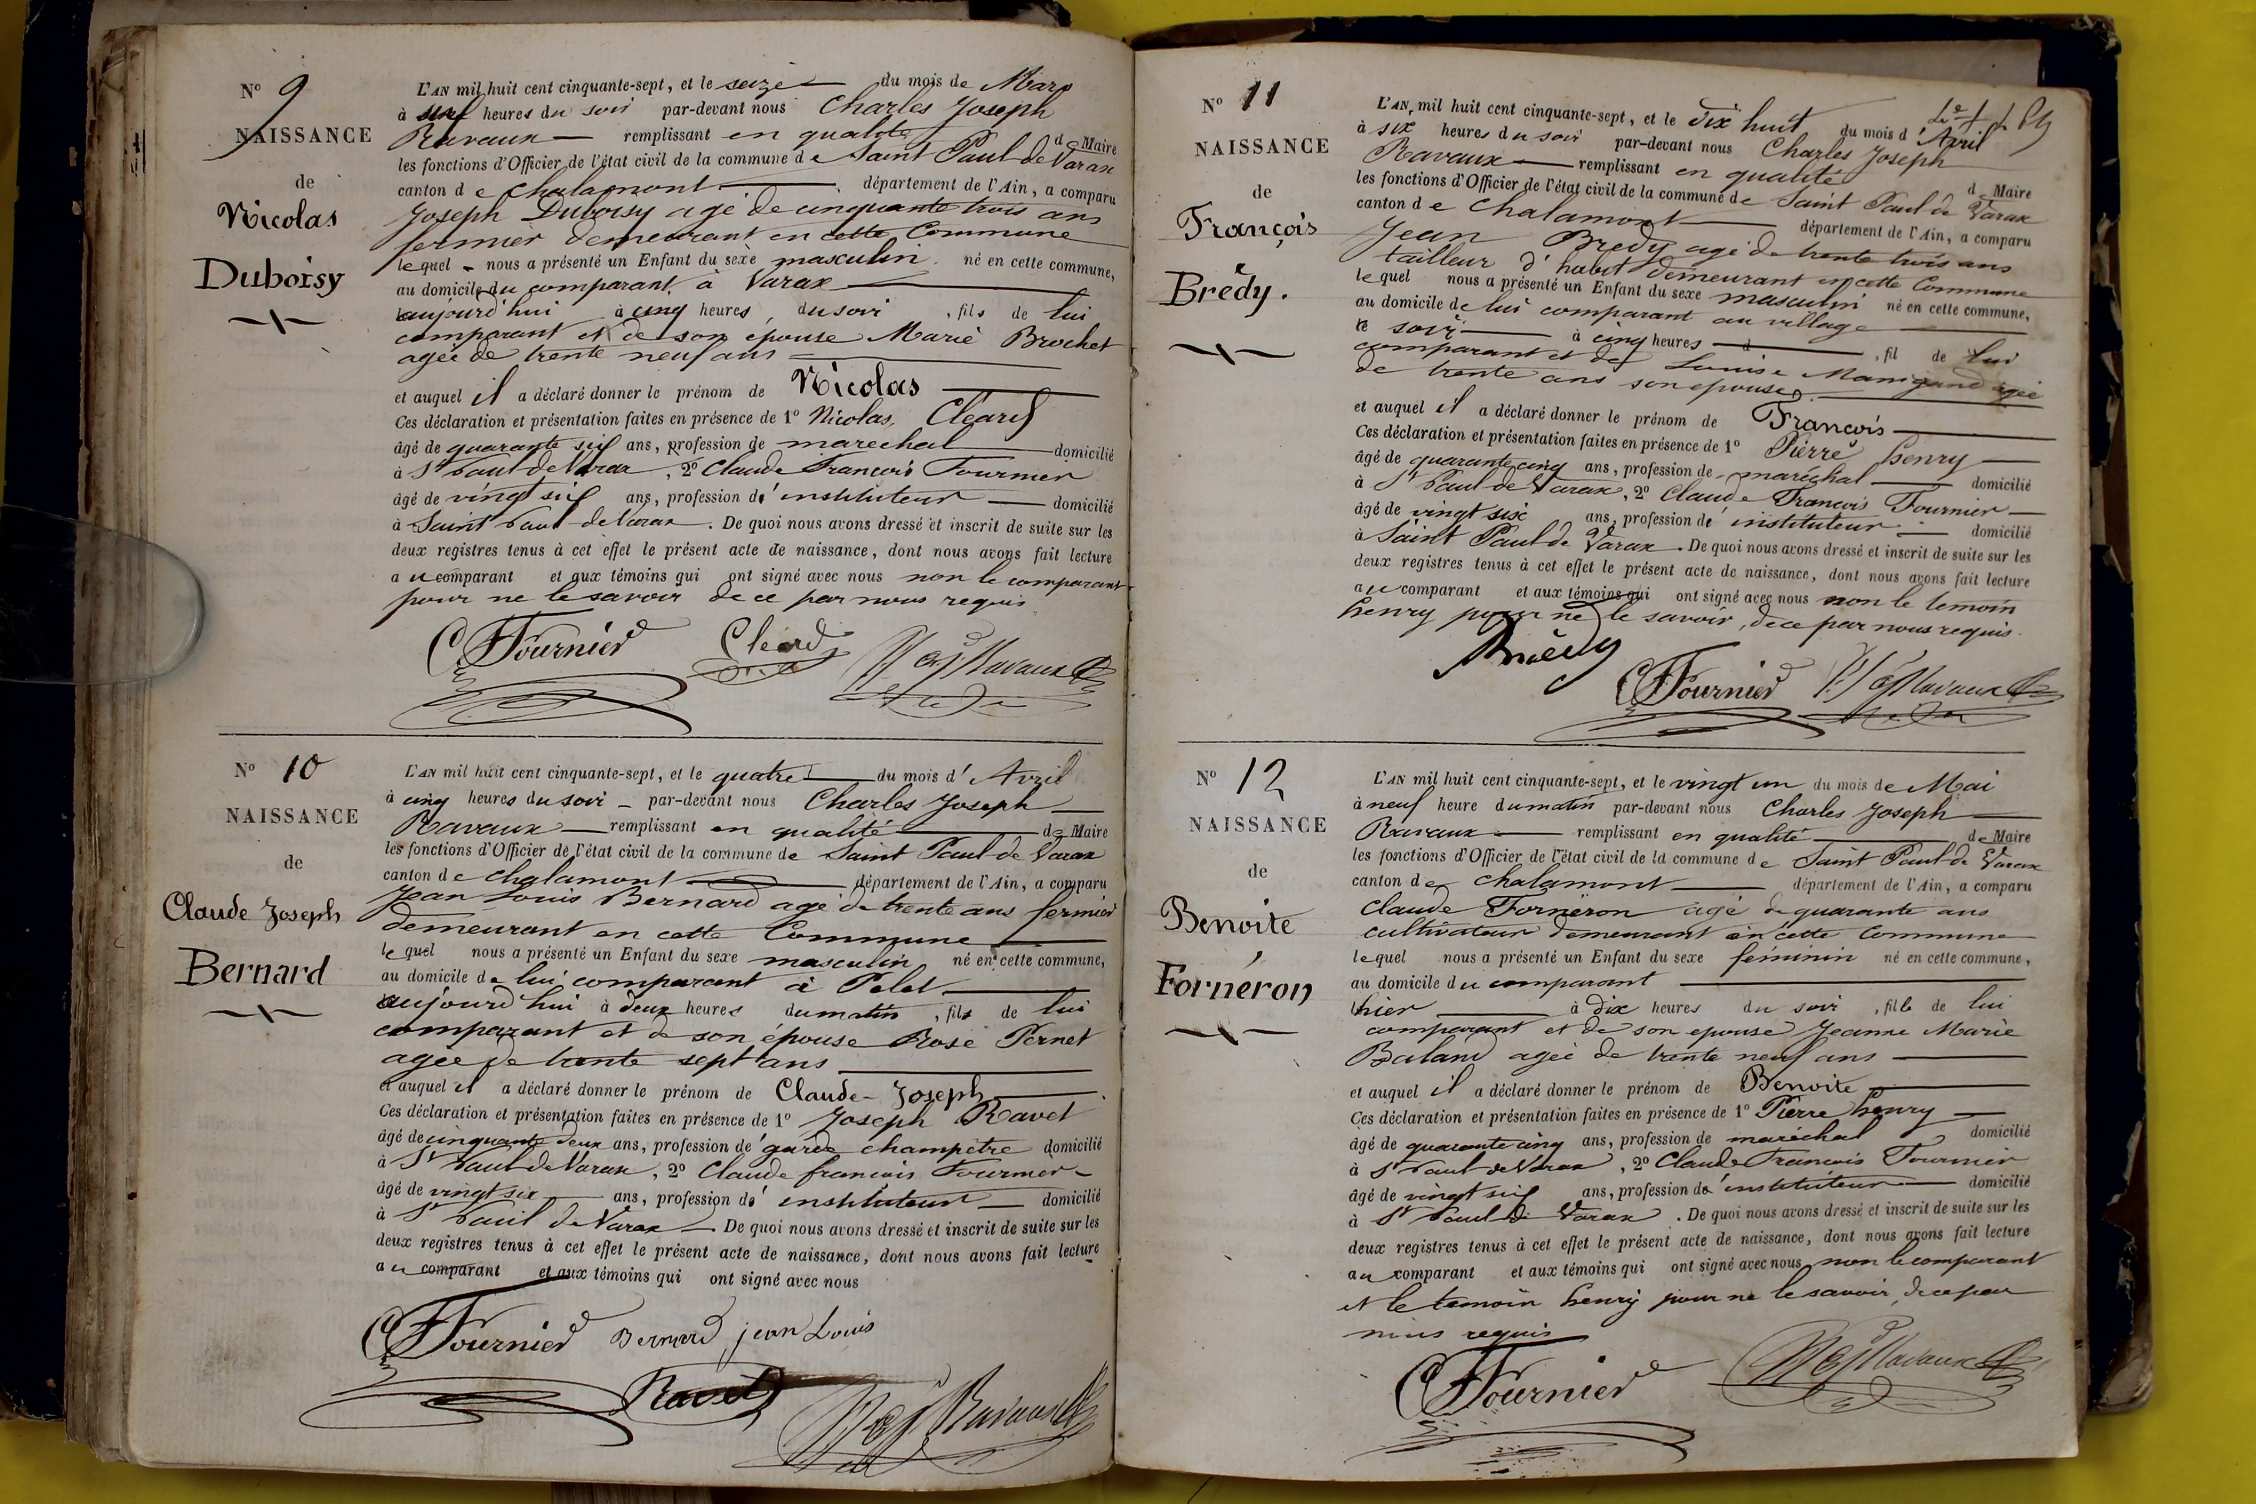 N° 9
NAISSANCE
de
Nicolas
Duboisy
L'AN mil huit cent cinquante-sept, et le seize du mois de Mars
à heures du soir par-devant nous Charles Joseph
Ravaux remplissant en qualité de Maire
les fonctions d'Officier de l'état civil de la commune de Saint Paul de Varax
canton de Chalamont département de l'Ain, a comparu
Joseph Duboisy agé de cinquante trois ans
fermier demeurant en cette Commune
lequel nous a présenté un Enfant du sexe masculin né en cette commune,
au domicile du comparant à Varax
aujourd'hui à cinq heures du soir, fils de lui
comparant et de son épouse Marie Brochet
agée de trente neuf ans
et auquel il a déclaré donner le prénom de Nicolas
Ces déclaration et présentation faites en présence de 1° Nicolas Cléard
âgé de quarante six ans, profession de maréchal domicilié
à St Paul de Varax, 2° Claude François Fournier
âgé de vingt six ans, profession d'instituteur domicilié
à Saint Paul de Varax. De quoi nous avons dressé et inscrit de suite sur les
deux registres tenus à cet effet le présent acte de naissance, dont nous avons fait lecture
au comparant et aux témoins qui ont signé avec nous non le comparant
pour ne le savoir de ce par nous requis
CFournier Cléard Ravaux
N° 10
NAISSANCE
de
Claude Joseph
Bernard
L'AN mil huit cent cinquante-sept, et le quatre du mois d'Avril
à cinq heures du soir par-devant nous Charles Joseph
Ravaux remplissant en qualité de Maire
les fonctions d'Officier de l'état civil de la commune de Saint Paul de Varax
canton de Chalamont département de l'Ain, a comparu
Jean Louis Bernard agé de trente ans fermier
demeurant en cette Commune
lequel nous a présenté un Enfant du sexe masculin né en cette commune,
au domicile de lui comparant à Pelet
aujourd'hui à deux heures du matin, fils de lui
comparant et de son épouse Rose Pernet
agée de trente sept ans
et auquel il a déclaré donner le prénom de Claude-Joseph
Ces déclaration et présentation faites en présence de 1° Joseph Ravet
âgé de cinquante deux ans, profession de garde champêtre domicilié
à St Paul de Varax, 2° Claude françois Fournier
âgé de vingt six ans, profession d'instituteur domicilié
à St Paul de Varax. De quoi nous avons dressé et inscrit de suite sur les
deux registres tenus à cet effet le présent acte de naissance, dont nous avons fait lecture
au comparant et aux témoins qui ont signé avec nous
CFournier Bernard jean Louis
Ravet Ravaux
N° 11
NAISSANCE
de
François
Brédy.
L'AN mil huit cent cinquante-sept, et le dix huit du mois d'Avril
à six heures du soir par-devant nous Charles Joseph
Ravaux remplissant en qualité de Maire
les fonctions d'Officier de l'état civil de la commune de Saint Paul de Varax
canton de Chalamont département de l'Ain, a comparu
Jean Brédy agé de trente trois ans
tailleur d'habit demeurant en cette Commune
lequel nous a présenté un Enfant du sexe masculin né en cette commune,
au domicile de lui comparant au village
ce soir à cinq heures d , fil de lui
comparant et de Louise Manigand agée
de trente ans son épouse
et auquel il a déclaré donner le prénom de François
Ces déclaration et présentation faites en présence de 1° Pierre henry
âgé de quarante cinq ans, profession de maréchal domicilié
à St Paul de Varax, 2° Claude François Fournier
âgé de vingt six ans, profession d'instituteur domicilié
à Saint Paul de Varax. De quoi nous avons dressé et inscrit de suite sur les
deux registres tenus à cet effet le présent acte de naissance, dont nous avons fait lecture
au comparant et aux témoins qui ont signé avec nous non le temoin
henry pour ne le savoir, de ce par nous requis.
Brédy
CFournier Ravaux
N° 12
NAISSANCE
de
Benoite
Forneron
L'AN mil huit cent cinquante-sept, et le vingt un du mois de Mai
à neuf heure du matin par-devant nous Charles Joseph
Ravaux remplissant en qualité de Maire
les fonctions d'Officier de l'état civil de la commune de Saint Paul de Varax
canton de Chalamont département de l'Ain, a comparu
Claude Forneron agé de quarante ans
cultivateur demeurant en cette Commune
lequel nous a présenté un Enfant du sexe féminin né en cette commune,
au domicile du comparant
hier à dix heures du soir, fille de lui
comparant et de son epouse Jeanne Marie
Baland agée de trente neuf ans
et auquel il a déclaré donner le prénom de Benoite
Ces déclaration et présentation faites en présence de 1° Pierre henry
âgé de quarante cinq ans, profession de maréchal domicilié
à St Paul de Varax, 2° Claude François Fournier
âgé de vingt six ans, profession d'instituteur domicilié
à St Paul de Varax. De quoi nous avons dressé et inscrit de suite sur les
deux registres tenus à cet effet le présent acte de naissance, dont nous avons fait lecture
au comparant et aux témoins qui ont signé avec nous non le comparant
et le temoin henry pour ne le savoir, de ce par
nous requis
CFournier Ravaux